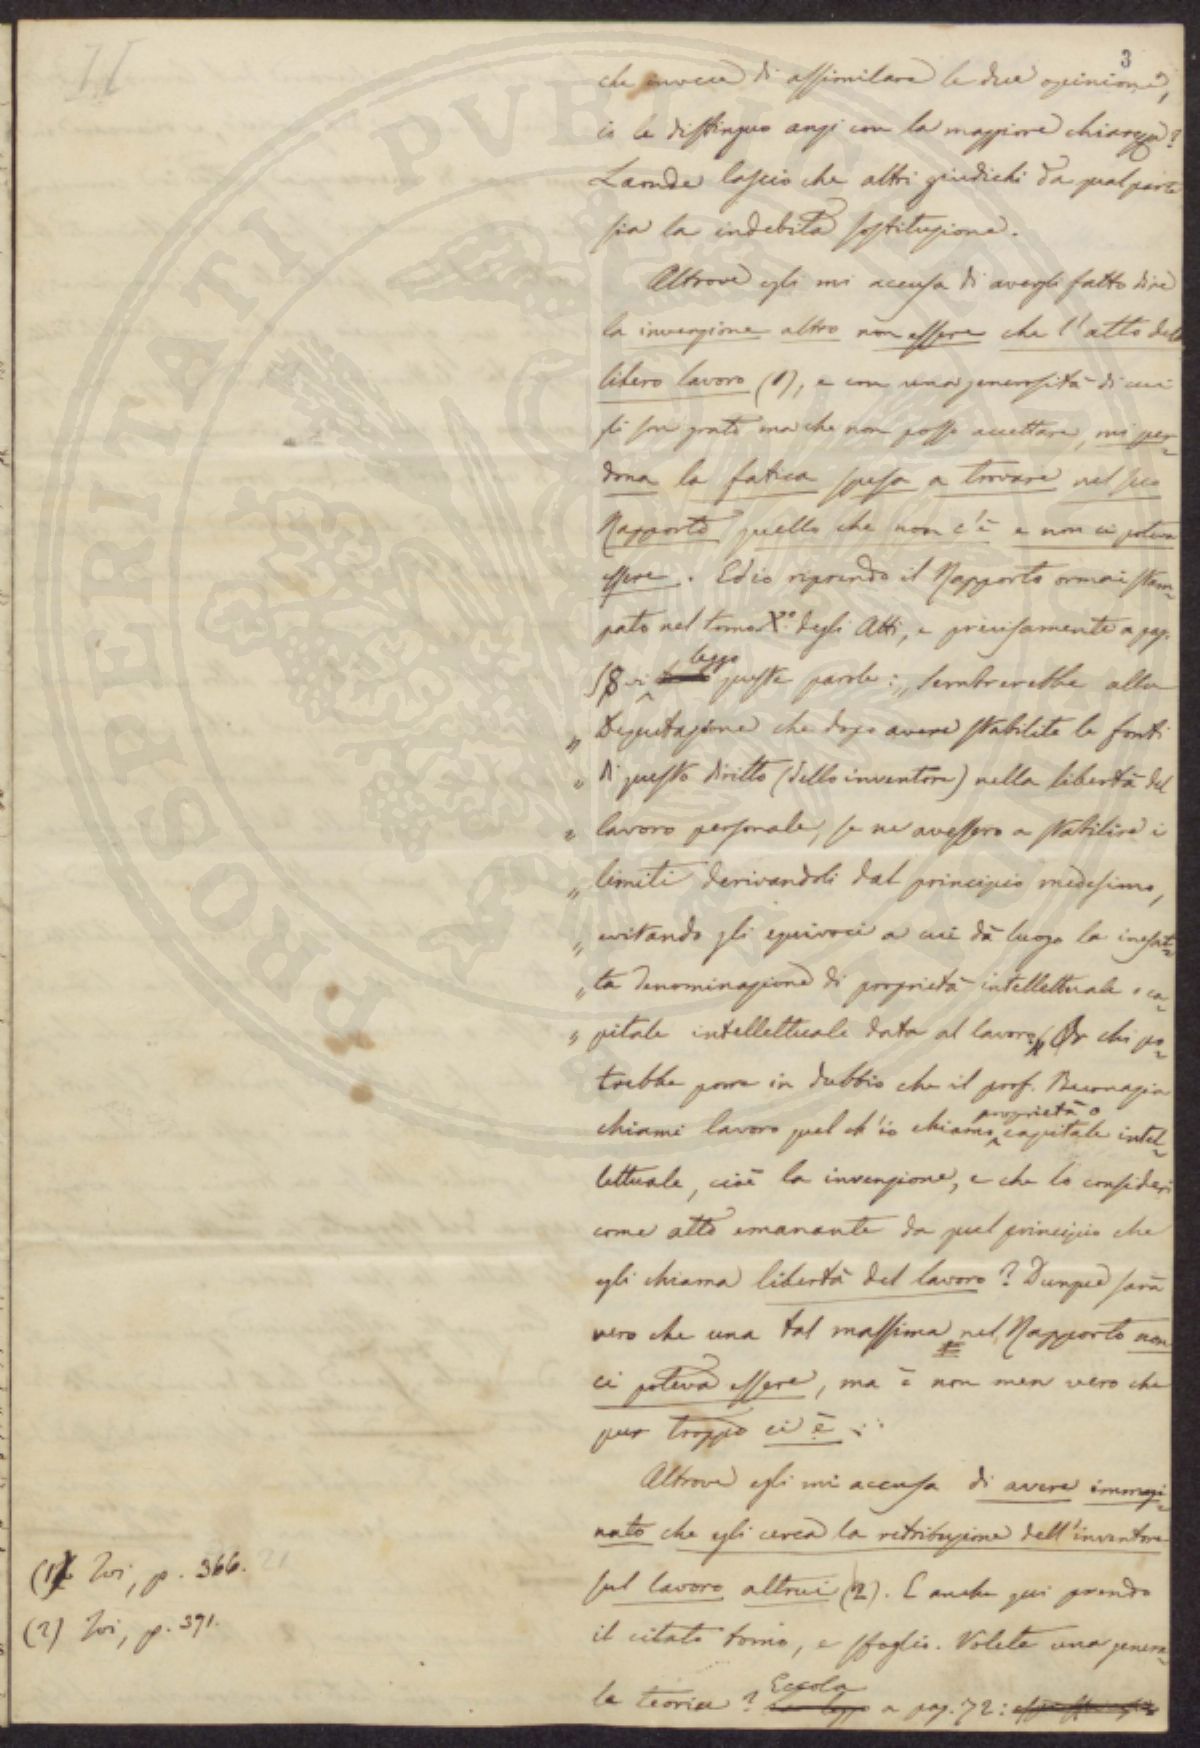 3
che invece di assimilare le due opinioni,
io le distinguo anzi con la maggiore chiarezza?
Laonde lascio che altri giudichi da qual parte
sia la indebita sostituzione.
Altrove egli mi accusa di avergli fatto dire
la invenzione altro non essere che l'atto del
libero lavoro (1), e con una generosità di cui
gli son grato ma che non posso accettare, mi per-
dona la fatica spesa a trovare nel suo
Rapporto quello che non c'è e non ci poteva
essere. Ed io riprendo il Rapporto ormai stam-
pato nel tomo X.º degli Atti, e precisamente a pag.
58 vi leggo queste parole: „ Sembrerebbe alla
„ Deputazione che dopo avere stabilite le fonti
„ di questo diritto (dello inventore) nella libertà del
„ lavoro personale, se ne avessero a stabilire i
„ limiti derivandoli dal principio medesimo,
„ evitando gli equivoci a cui dà luogo la inesat-
„ ta denominazione di proprietà intellettuale o ca-
„ pitale intellettuale data al lavoro „ Or chi po-
trebbe porre in dubbio che il prof. Buonazia
chiami lavoro quel ch'io chiamo proprietà o capitale intel-
lettuale, cioè la invenzione, e che lo consideri
come atto emanante da quel principio che
egli chiama libertà del lavoro? Dunque sarà
vero che una tal massima nel Rapporto non
ci poteva essere, ma è non men vero che
pur troppo ci è.
Altrove egli mi accusa di avere immagi-
nato che egli cerca la retribuzione dell'inventore
sul lavoro altrui (2). E anche qui prendo
il citato tomo, e sfoglio. Volete una genera-
le teoria? Eccola a pag. 72:
(1) Ivi, p. 366.
(2) Ivi, p. 371.
PROSPERITATI PUBLICAE